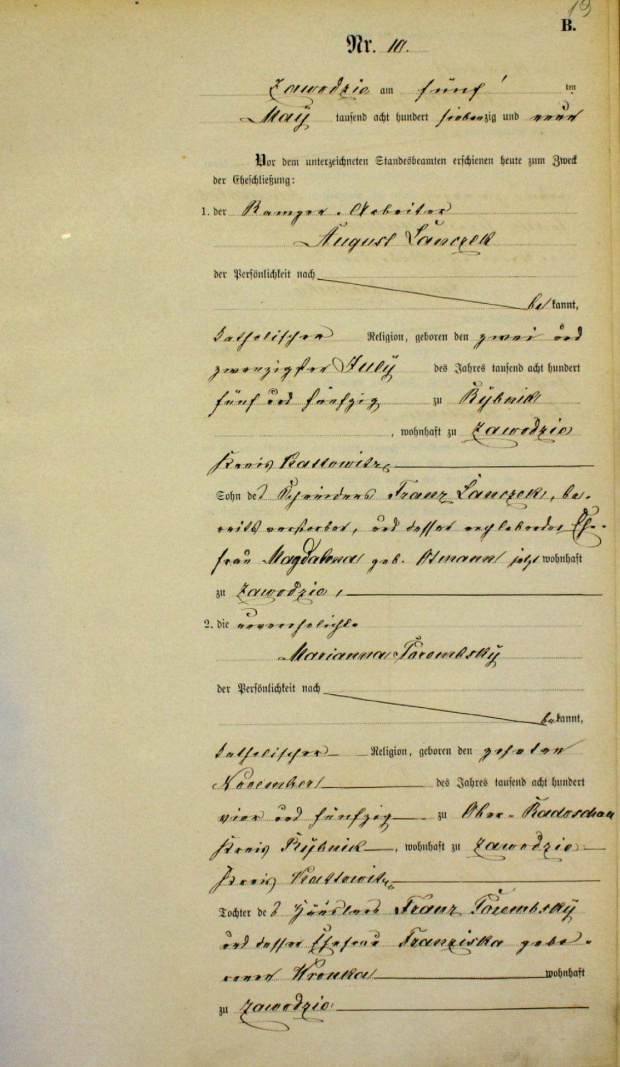 19
B.
Nr. 10.
Zawodzie am fünf ten
May tausend acht hundert siebenzig und neun
Vor dem unterzeichneten Standesbeamten erschienen heute zum Zweck
der Eheschließung:
1. der Arbeiter
August Lanczek
der Persönlichkeit nach
be kannt,
katholischer Religion, geboren den zwei und
zwanzigsten July des Jahres tausend acht hundert
fünf und fünfzig zu Rÿbnik
, wohnhaft zu Zawodzie
Kreis Kattowitz
Sohn des Franz Lanczek, be-
reits verstorben, und dessen nachlebenden Ehe-
frau Magdalena geb. Otmann jetzt wohnhaft
zu Zawodzie,
2. die unverehelichte
Marianna Porembskÿ
der Persönlichkeit nach
be kannt,
katholischer Religion, geboren den zehnten
November des Jahres tausend acht hundert
vier und fünfzig zu Ober-Radoschau
Kreis Rÿbnick, wohnhaft zu Zawodzie
Kreis Kattowitz
Tochter des Häuslers Franz Porembskÿ
und dessen Ehefrau Franziska gebo-
renen Kronka wohnhaft
zu Zawodzie